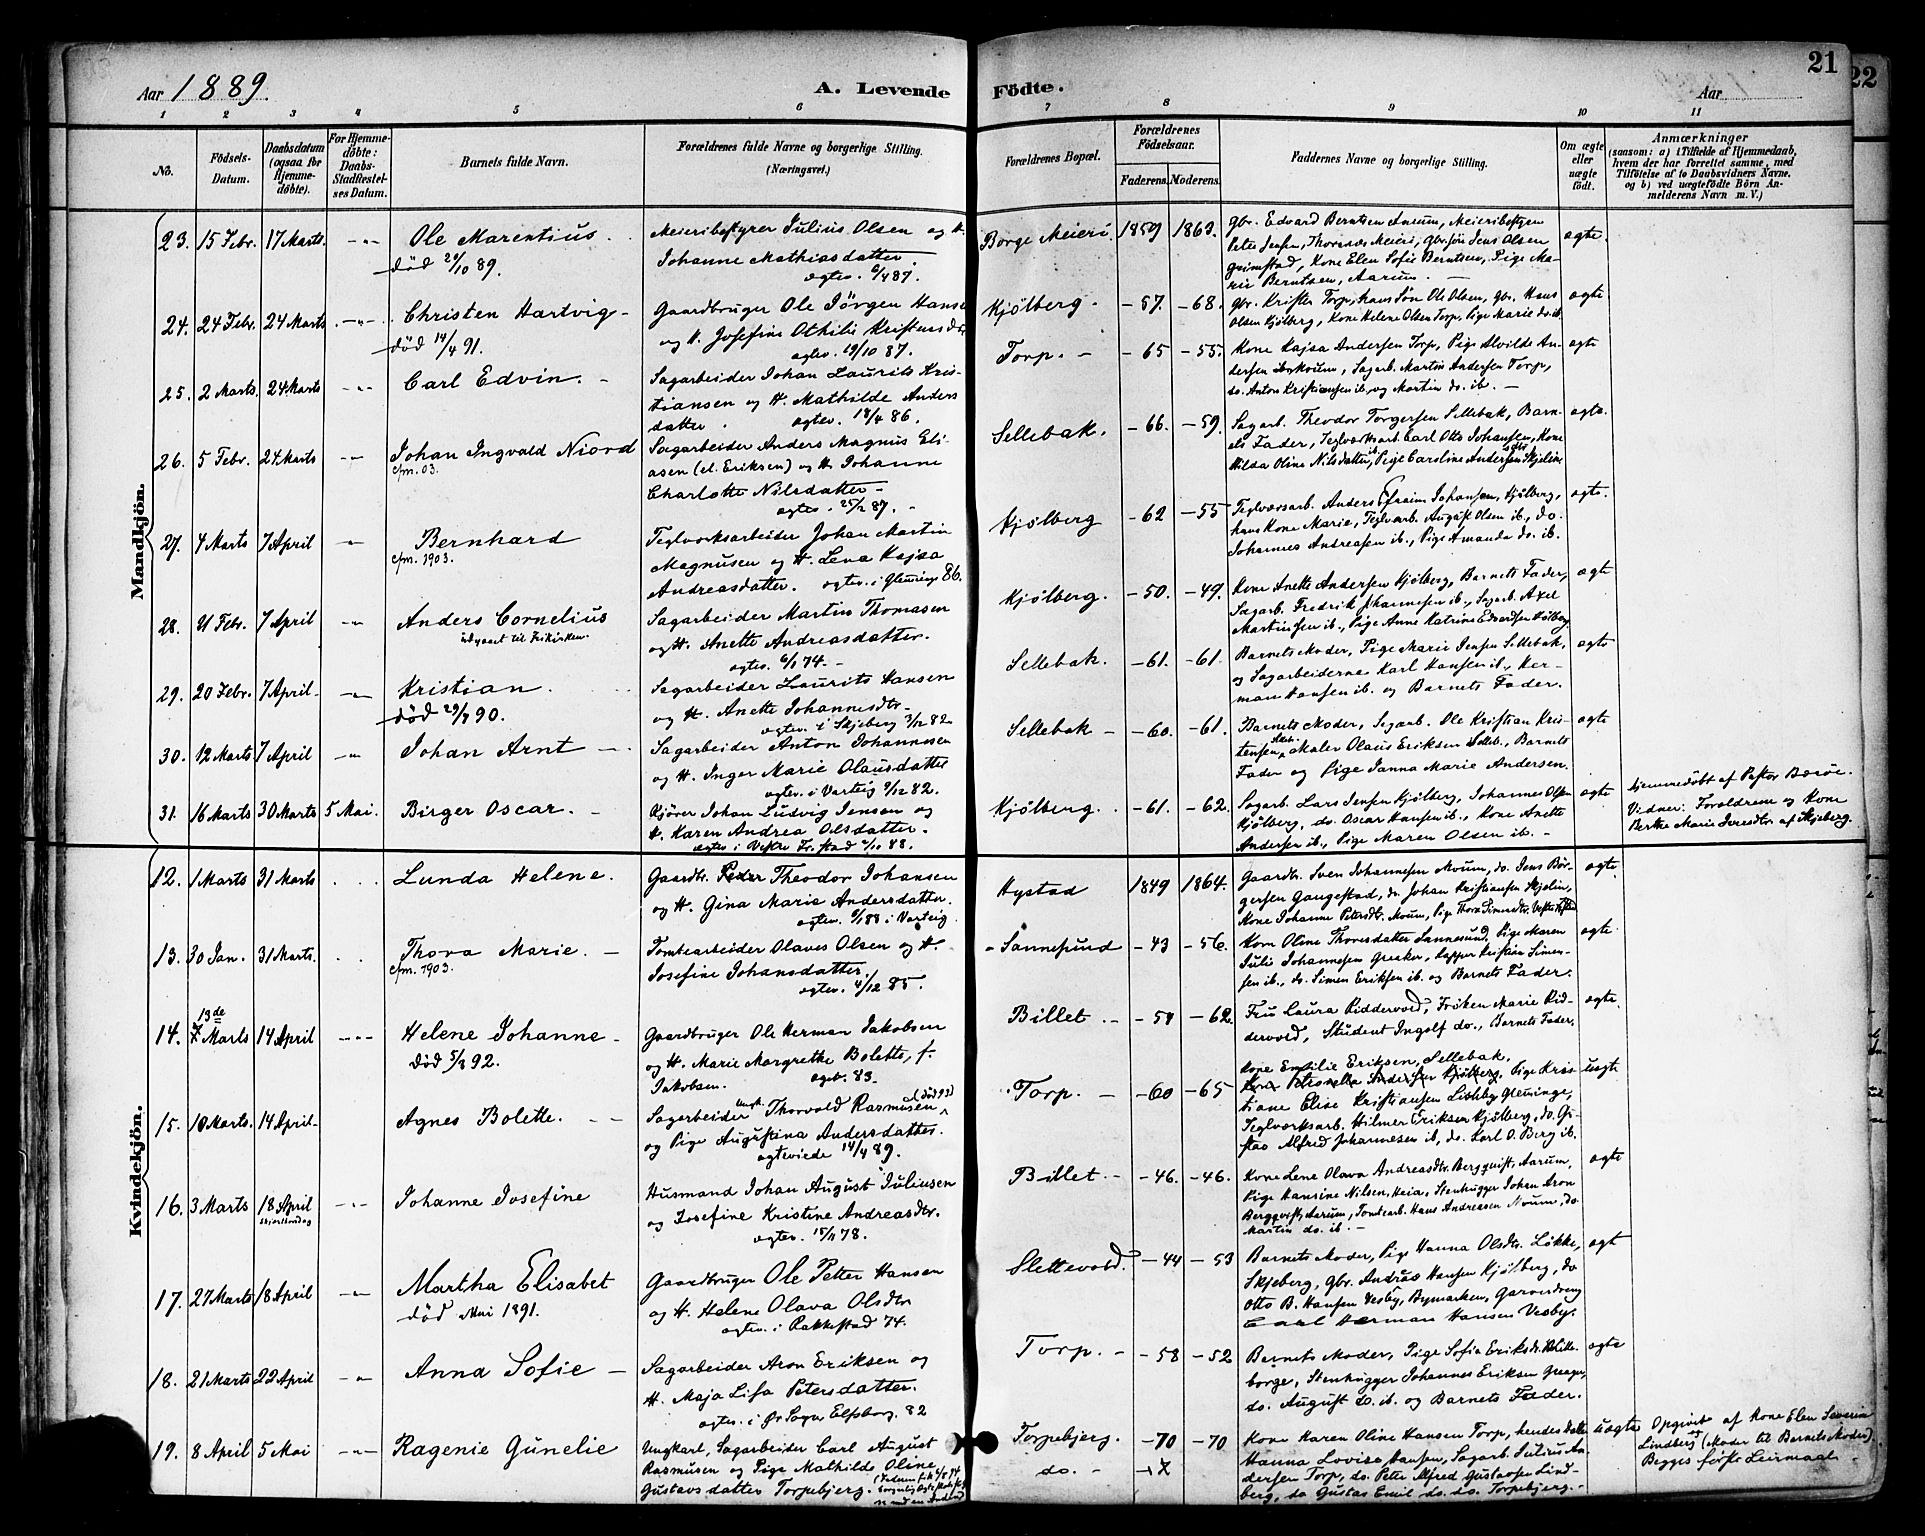 Aar 1889.
A. Levende Födte.
Aar
21
22
1 2 3 4 5 6 7 8 9 10 11
No.
Födsels-Datum.
Daabsdatum (ogsaa for Hjemmedöbte).
For Hjemmedöbte: Daabs-Stadfæstelses Datum.
Barnets fulde Navn.
Forældrenes fulde Navne og borgerlige Stilling. (Næringsvei.)
Forældrenes Bopæl.
Forældrenes Födselsaar.
Faderens. Moderens.
Faddernes Navne og borgerlige Stilling.
Om ægte eller uægte födt.
Anmærkninger
(saasom: a) i Tilfælde af Hjemmedaab, hvem der har forrettet samme, med Tilföielse af to Daabsvidners Navne. og b) ved uægtefödte Börn Anmelderens Navn m. V.)
Mandkjön.
23. 15 Febr. 17 Marts. Ole Marentius. død 20/10 89.
Meieribestyrer Julius Olsen og H.
Johanne Mathiasdatter
Borge Meieri. 1859 1863.
Gbr. Edvard Berntsen Aarum, Meieribestyrer
Peter Jensen, Thorsnæs Meieri, Gbr. søn Jens Olsen
Grimstad, Kone Elen Sofie Berntsen, Pige Ma-
rie Berntsen, Aarum.
ægte.
24. 24 Febr. 24 Marts Christen Hartvig død 14/4 91.
Gaardbruger Ole Jörgen Hansen
og H. Josefine Othilie Kristensdtr
ægtev. 19/10 87.
Kjølberg. -57. -68.
Gbr. Krister Torp, hans Søn Ole Olsen, Gbr. Hans
Olsen Kjølberg, Kone Helene Olsen Torp, Pige Marie do. ib.
ægte
25. 2 Marts. 24 Marts Carl Edvin.
Sagarbeider Johan Laurits Kris-
tiansen og H. Mathilde Anders
datter. ægtev. 18/4 86.
Torp. -65 -55.
Kone Kajsa Andersen Torp, Pige Alvilde An-
dersen, Sagarb. Martin Andersen Torp,
do. Anton Kristiansen ib. og Martin do. ib.
ægte
26. 5 Febr. 24 Marts Johan Ingvald Niord cfm. 03.
Sagarbeider Anders Magnus Eli-
asen (el. Eriksen) og H. Johanne
Charlotte Nilsdatter
Sellebak. -66. -59.
Sagarb. Theodor Torgersen Sellebak, Barn-
ets Fader, Teglværksarb. Carl Otto Johansen, Kone
Hilda Oline Nilsdatter, Pige Caroline Andersen Skjelin
ægte.
27. 4 Marts 7 April Bernhard cfm. 1903.
Teglværksarbeider Johan Martin
Magnusen og H. Lena Kajsa
Andreasdatter. ægtev. i Glemminge 86.
Kjølberg -62 -55
Teglværksarb. Anders Efraim Johansen, Kjølberg,
hans Kone Marie, Teglværb. August Olsen ib., do.
Johannes Andreasen ib., Pige Amanda do. ib.
ægte.
28. 21 Febr. 7 April Anders Cornelius
udgaaet til Frikirken.
Sagarbeider Martin Thomasen
og H. Anette Andreasdatter.
ægtev. 6/1 74.
Kjølberg. -50. -49.
Kone Anette Andersen Kjølberg, Barnets Fader,
Sagarb. Fredrik Johannesen ib., Sagarb. Axel
Martinsen ib., Pige Anne Katrine Edvardsen Kjølberg
ægte
29. 20 Febr. 7 April Kristian. død 90.
Sagarbeider Laurits Hansen
og H. Anette Johannesdtr.
ægtev. i Skjeberg 3/12 82
Sellebak. -61. -61.
Barnets Moder, Pige Marie Jensen Sellebak,
og Sagarbeiderne Karl Hansen ib., Her-
man Hansen ib. og Barnets Fader.
ægte
30. 12 Marts 7 April Johan Arnt
Sagarbeider Anton Johannesen
og H. Inger Marie Olausdatter
ægtev. i Varteig 9/12 82.
Sellebak -60. -61.
Barnets Moder, Sagarb. Ole Kristian Kris-
tensen, Maler Olaus Eriksen Selleb., Barnets
Fader og Pige Janna Marie Andersen.
ægte
31. 16 Marts 30 Marts 5 Mai. Birger Oscar.
Kjører Johan Ludvig Jensen og
H. Karen Andrea Olsdatter.
Kjølberg. -61. -62.
Sagarb. Lars Jensen Kjølberg, Johannes Olsen
Kjølberg, do. Oscar Hansen ib., Kone Anette
Andersen ib., Pige Maren Olsen ib.
ægte
Hjemmedøbt af Pastor Børøe.
Vidner: Forældrene og Kone
Berthe Marie Iversdtr. af Skjeberg.
Kvindekjön.
12. 1 Marts 31 Marts Lunda Helene.
Gaardbr. Peder Theodor Johansen
og H. Gina Marie Andersdatter.
ægtev. 88 i Varteig.
Hystad 1849 1864.
Gaardbr. Sven Johannesen Moum, do. Jens Bør-
gersen Gaugestad, do. Johan Kristiansen Skjelin,
Kone Johanne Petersdtr. Moum,
ægte.
13. 30 Jan. 31 Marts. Thora Marie. cfm. 1903.
Tomtearbeider Olaves Olsen og H.
Josefine Johansdatter.
ægtev. 4/12 85.
Sannesund -43 -56.
Kone Oline Thoresdatter Sannesund, Pige Maren
Julie Johannesen Greaker, Kristian Simen-
sen ib., do. Simen Eriksen ib. og Barnets Fader.
ægte.
14. 13de 7 Marts 14 April Helene Johanne død 5/8 92.
Gaardbruger Ole Herman Jakobsen
og H. Marie Margrethe Bolette, f.
Jakobsen. ægtev. 83.
Billet. -59 -62.
Fru Laura Riddervold, Frøken Marie Rid-
dervold, Student Ingolf do., Barnets Fader,
ægte.
15. 10 Marts. 14 April. Agnes Bolette.
Sagarbeider Ungk. Thorvald Rasmusen (død 93)
og Pige Augustina Andersdatter.
ægteviede 14/4 89.
Torp. -60 -65
Kone Emilie Eriksen, Sellebak,
Kone Petronelle Andersen Kjølberg, Pige Kris-
tiane Elise Kristiansen Lisleby Glemminge,
Teglværksarb. Hilmer Eriksen Kjølberg, do. Gu-
stav Alfred Johannesen ib., do. Karl O. Berg ib.
uægt
16. 3 Marts 18 April Skjærtorsdag Johanne Josefine
Husmand Johan August Juliusen
og Josefine Kristine Andreasdtr.
Billet. -46. -46.
Kone Lene Olava Andreasdtr. Bergqvist, Aarum,
Pige Hansine Nilsen, Heia, Stenhugger Johan Aron
Bergqvist, Aarum, Tomtearb. Hans Andreasen Moum, do.
Martin do. ib.
ægte
17. 27 Marts 18 April Martha Elisabet død Mai 1891.
Gaardbruger Ole Petter Hansen
og H. Helene Olava Olsdtr
ægtev. i Rakkestad 74.
Slettevold. -44 -53
Barnets Moder, Pige Hanna Olsdtr. Løkke,
Skjeberg, Gbr. Andreas Hansen Kjølberg, do
Otto B. Hansen Vesby, Bymarken, Gaardreng
Carl Herman Hansen Vesby.
ægt
18. 21 Marts 22 April Anna Sofie
Sagarbeider Aron Eriksen og
H. Maja Lisa Petersdatter.
ægtev. i Ør Sogn Elfsborg. 82
Torp. -58 -52
Barnets Moder, Pige Sofie Eriksdtr.
borge, Stenhugger Johannes Eriksen
do. August do. ib. og Barnets Fader.
ægte
19. 8 April 5 Mai Ragenie Gunelie
Ungkarl, Sagarbeider Carl August
Rasmusen og Pige Mathilde Oline
Gustavsdatter Torpebjerg.
Torpebjerg. -70 -70
do.
Kone Karen Oline Hansen Torp, hendes Datter
Hanna Lovise Hansen, Sagarb. Julius An-
dersen Torp, do. Peter Alfred Gustavsen Lind-
berg, do Gustav Emil do. do. Torpebjerg.
uægte
Opgivet af Kone Elen Severin
Lindberg (Moder til Barnets Moder).
Begges første Leiermaal.